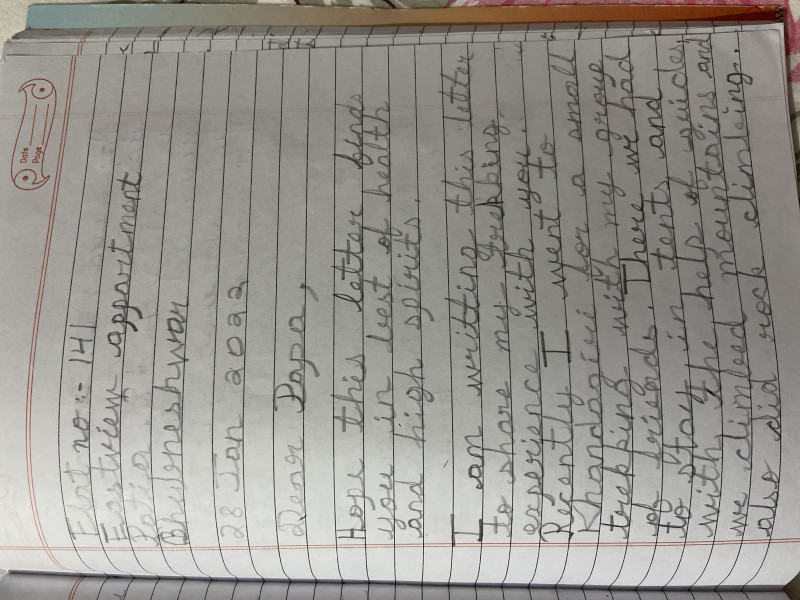 Date
Page
Flat no:- 141
Eastview appartment
Patia
Bhubneshwar
28 Jan 2022
Dear Papa,
Hope this letter finds
you in best of health
and high spirits.
I am writting this letter
to share my trekking
experience with you.
Recently I went to
Khandagiri for a small
trekking with my group
of friends. There we had
to stay in tents and
with the help of guides
we climbed mountains and
also did rock climbing.